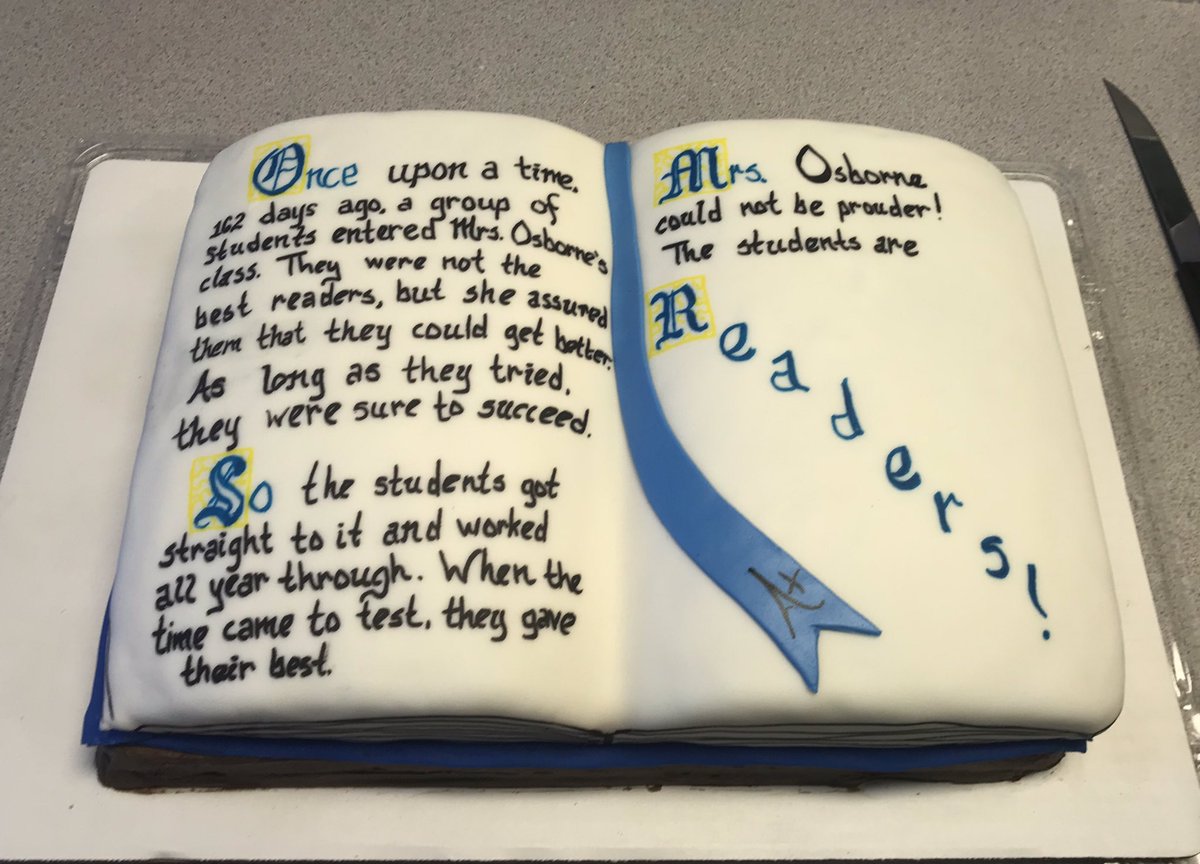 Once upon a time,
162 days ago, a group of
students entered Mrs. Osborne's
class. They were not the
best readers, but she assured
them that they could get better.
As long as they tried,
they were sure to succeed.
So the students got
straight to it and worked
all year through. When the
time came to test, they gave
their best.
Mrs. Osborne
could not be prouder!
The students are
Readers!
A+